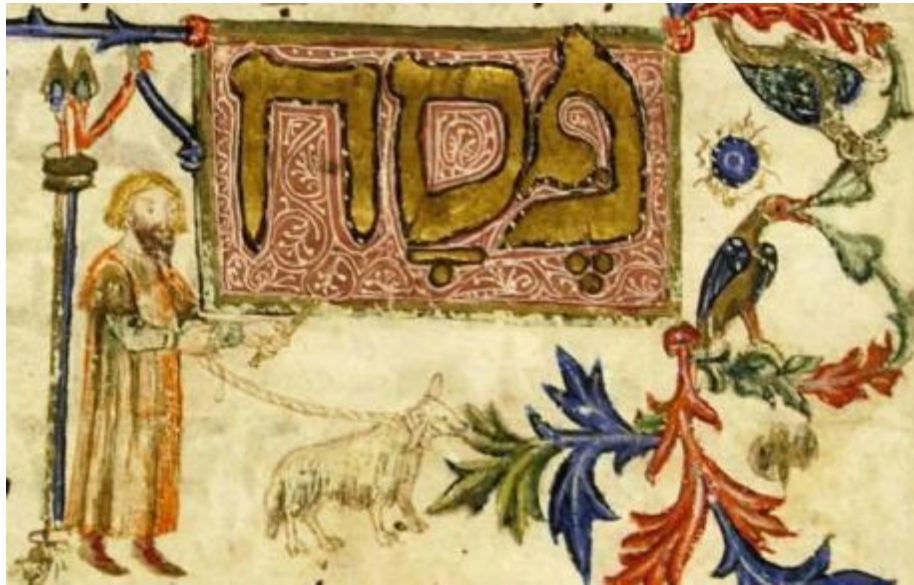 פֶּסָח